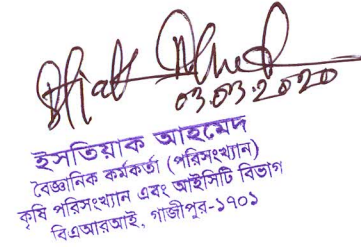 Ahmed
03.03.2020
ইসতিয়াক আহমেদ
বৈজ্ঞানিক কর্মকর্তা (পরিসংখ্যান)
কৃষি পরিসংখ্যান এবং আইসিটি বিভাগ
বিএআরআই, গাজীপুর-১৭০১